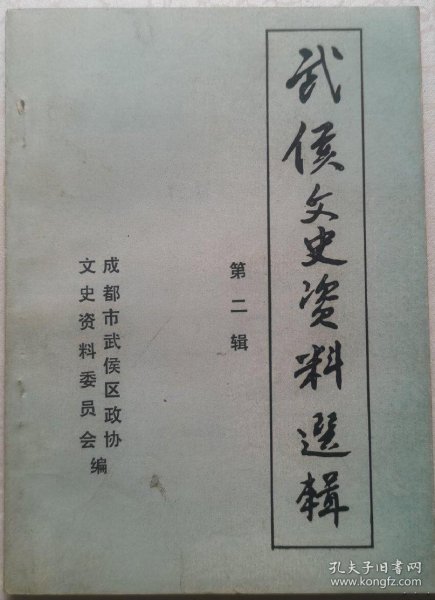 武侯文史资料選輯
第二辑
成都市武侯区政协
文史资料委员会编
孔夫子旧书网
www.kongfz.com